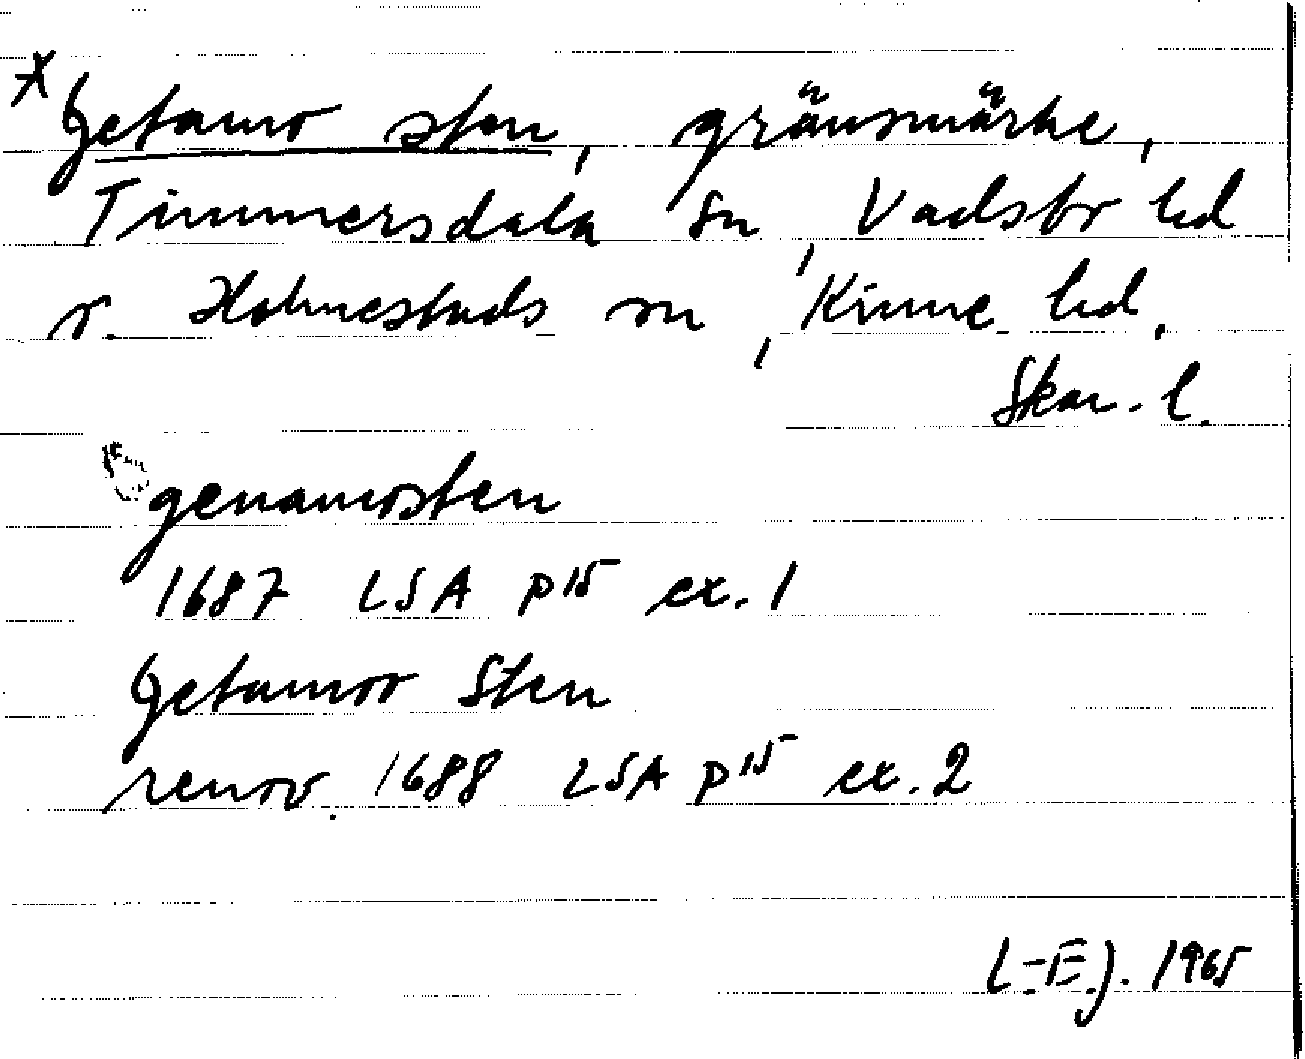 * Getamo sten, gränsmärke,
Timmersdala sn, Vadsbo hd
o. Holmestads sn, Kinne hd,
Skar. l.
genamosten
1687 LSA P15 ex. 1
Getamos Sten
renov. 1688 LSA P15 ex. 2
L-E J. 1965